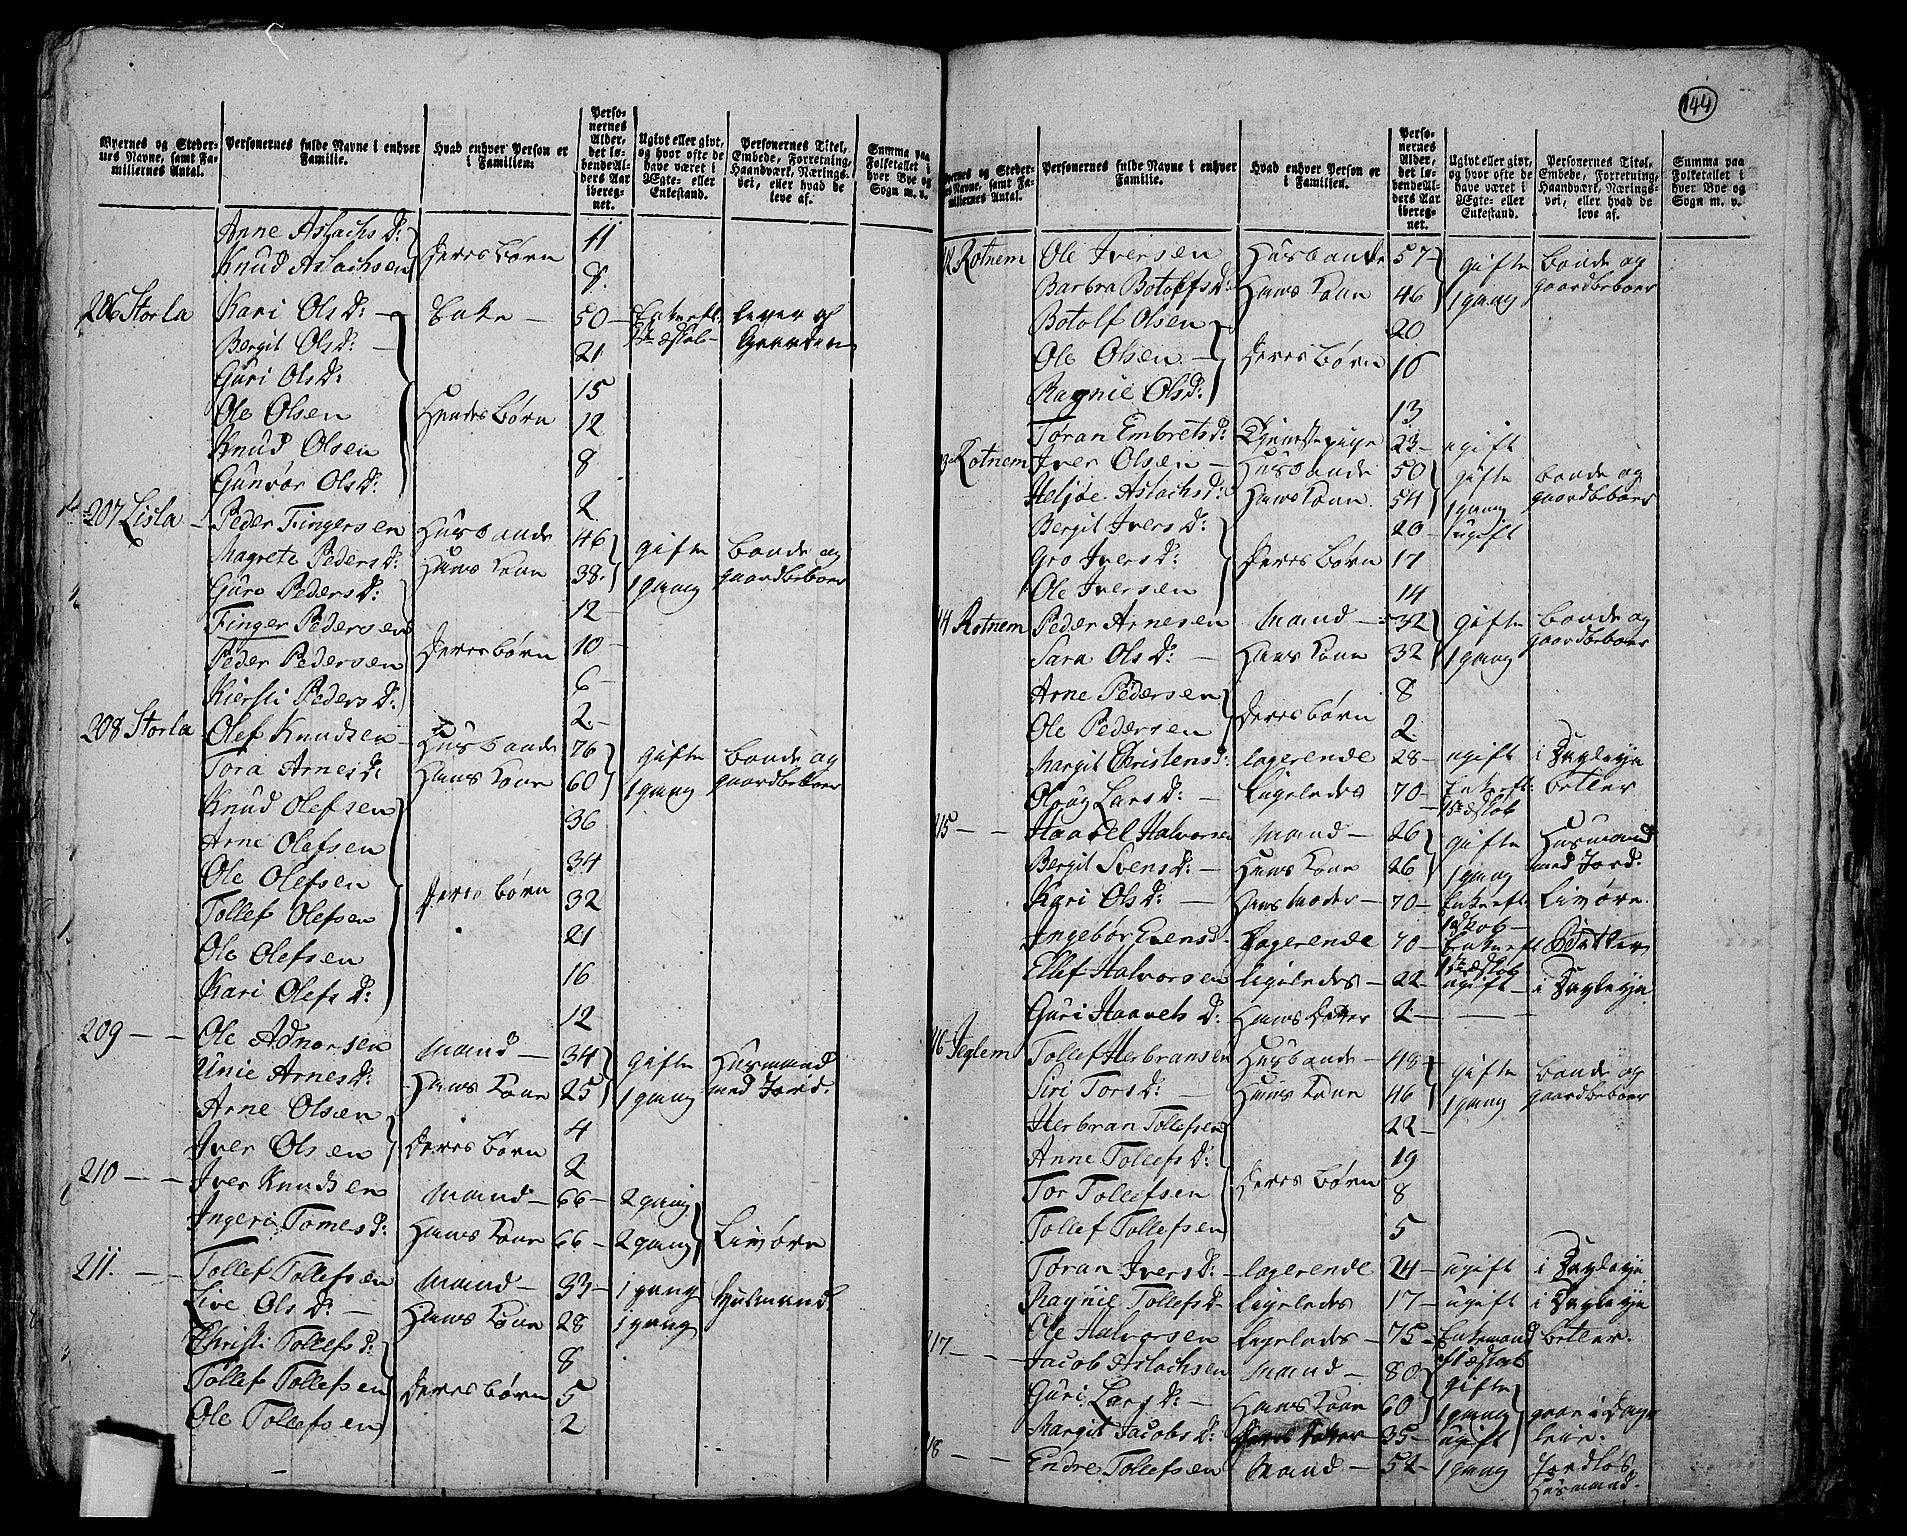 144
Byernes og Steder-
nes Navne, samt Fa-
miliernes Antal.
Personernes fulde Navne i enhver
Familie.
Hvad enhver Person er
i Familien.
Perso-
nernes
Alder,
det lø-
bende Al-
ders Aar
ibereg-
net.
Ugivt eller givt,
og hvor ofte de
have været i
Ægte- eller
Enkestand.
Personernes Titel,
Embede, Forretning,
Haandværk, Nærings-
vei, eller hvad de
leve af.
Summa paa
Folketallet i
hver Bye og
Sogn m. v.
Anne Aslachs D: 11
Knud Aslachsen Deres Børn 8
206 Storla Kari Ols D: — Enke — 50 — Enke efter lever af
Bergit Ols D: — 21 Gaarden
Guri Ols D: 15
Ole Olsen Hendes Børn 12
Knud Olsen 8
Gunvor Ols D: 2
207 Lisla — Peder Fingersen Husbonde 46 gifte Bonde og
Magrete Peders D: Hans Kone 38 1 gang gaardbeboer
Guro Peders D: 12
Finger Pedersen 10
Peder Pedersen Deres Børn 6
Kiersti Peders D: 2
208 Storla Olef Knudsen Husbonde 76 gifte Bonde og
Tora Arnes D: Hans Kone 60 1 gang gaardbeboer
Knud Olefsen 36
Arne Olefsen 34
Ole Olefsen Deres Børn 32
Tollef Olefsen 21
Ole Olefsen 16
Kari Olefs D: 12
209 — — Ole Adnorsen Mand — 34 gifte Husmand
Unie Arnes D: Hans Kone 25 1 gang med Jord.
Arne Olsen 4
Iver Olsen Deres Børn 2
210 — — Iver Knudsen Mand — 66 — 2 gang
Ingeri Tomes D: Hans Kone 66 — 2 gang Limøre
211. — — Tollef Tollefsen Mand — 33 — 1 gang Husmand
Live Ols D: — Hans Kone 28 1 gang
Christi Tollefs D: 8
Tollef Tollefsen Deres Børn 5
Ole Tollefsen 2
Byernes og Steder-
nes Navne, samt Fa-
miliernes Antal.
Personernes fulde Navne i enhver
Familie.
Hvad enhver Person er
i Familien.
Perso-
nernes
Alder,
det lø-
bende Al-
ders Aar
ibereg-
net.
Ugivt eller givt,
og hvor ofte de
have været i
Ægte- eller
Enkestand.
Personernes Titel,
Embede, Forretning,
Haandværk, Nærings-
vei, eller hvad de
leve af.
Summa paa
Folketallet i
hver Bye og
Sogn m. v.
12 Rotnem Ole Iversen Husbonde 57 gifte Bonde og
Barbra Botolfs D: Hans Kone 46 1 gang gaardbeboer
Botolf Olsen 20
Ole Olsen — Deres Børn 16
Ragnie Ols D: 13
Tøran Embrets D: Tieneste pige 23 — ugift
13 Rotnem Iver Olsen — Husbonde 50 gifte Bonde og
Heljøe Aslachs D: Hans Kone 54 1 gang gaardbeboer
Bergit Ivers D: 20 ugift
Gro Ivers D: Deres Børn 17
Ole Iversen 14
14 Rotnem Peder Arnesen Mand — 32 gifte Bonde og
Sara Ols D: — Hans Kone 32 1 gang gaardbeboer
Arne Pedersen 8
Ole Pedersen Deres Børn 2
Margit Christens D: logerende 28 — ugift i Dagleye
Oloug Lars D: — Ligeledes 70 — Betler
15 — — Haavel Halvorsen Mand — 26 gifte Husmand
Bergit Svens D: — Hans Kone 26 1 gang med Jord:
Kari Ols D: — Hans Moder — 70 — Limøre.
Ingebør Evens D: logerende 70 — Betler
Ellef Halvorsen ligeledes — 22 — ugift — i Dagleye
Guri Haavels D: Hans Dotter 2 —
16 Jeglem Tollef Herbransen Husbonde — 48 gifte Bonde og
Siri Tors D: — Hans Kone 46 1 gang gaardbeboer
Herbran Tollefsen 22 —
Anne Tollefs D: 19
Tor Tollefsen Deres Børn 8
Tollef Tollefsen 5
Tøran Ivers D: — logerende 24 — ugift i Dagleye
Ragnie Tollefs D: Ligeledes 17 — ugift i Dagleye
Ole Halvorsen Ligeledes — 75 — Enkemand Betler.
17 — — Jacob Aslachsen Mand — 80 gifte
Guri Lars D: — Hans Kone 60 1 gang gaar i Dag
Margit Jacobs D: Deres Dotter 35 — ugift leie.
18 — — Endre Tollefsen Mand — 52 — 1 gang Jordløs
Husmand.